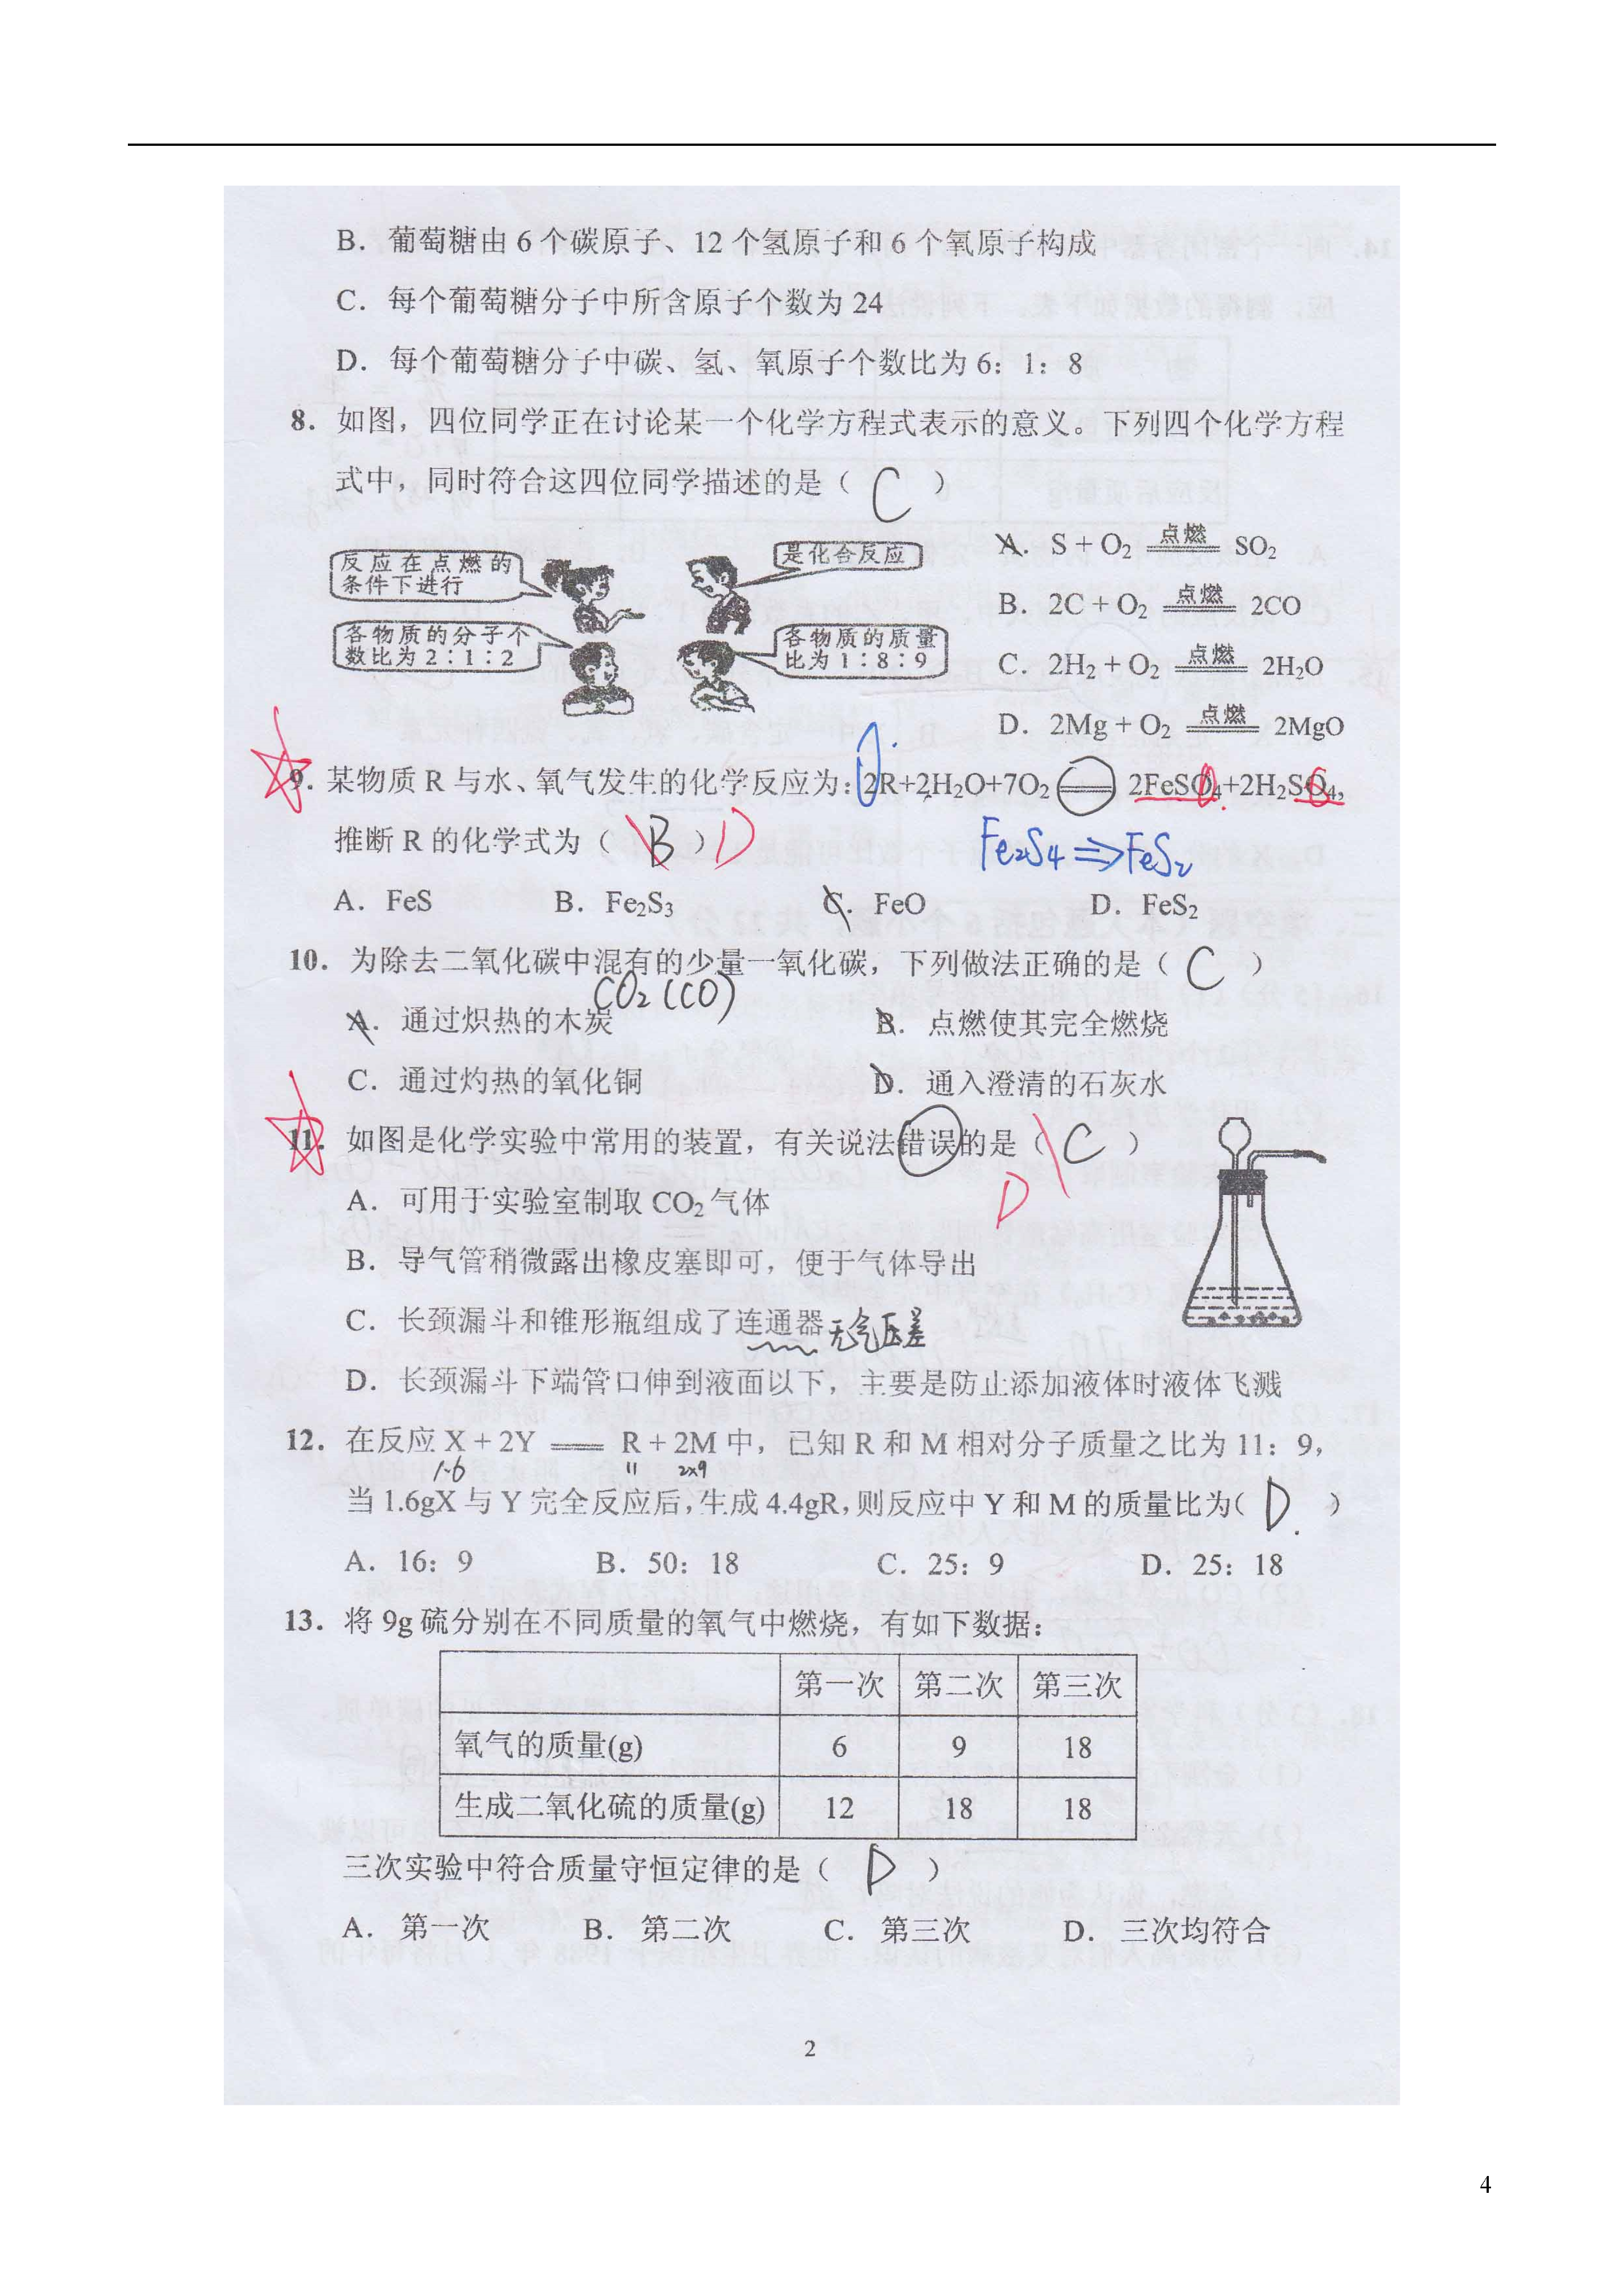 B. 葡萄糖由 6 个碳原子、12 个氢原子和 6 个氧原子构成
C. 每个葡萄糖分子中所含原子个数为 24
D. 每个葡萄糖分子中碳、氢、氧原子个数比为 6：1：8
8. 如图，四位同学正在讨论某一个化学方程式表示的意义。下列四个化学方程
式中，同时符合这四位同学描述的是（ C ）
反应在点燃的
条件下进行
是化合反应
各物质的分子个
数比为 2：1：2
各物质的质量
比为 1：8：9
A. S + O₂ 点燃 SO₂
B. 2C + O₂ 点燃 2CO
C. 2H₂ + O₂ 点燃 2H₂O
D. 2Mg + O₂ 点燃 2MgO
9. 某物质 R 与水、氧气发生的化学反应为：2R+2H₂O+7O₂ ══ 2FeSO₄+2H₂SO₄，
推断 R 的化学式为（ B ） D
Fe₂S₄ ⇒ FeS₂
A. FeS B. Fe₂S₃ C. FeO D. FeS₂
10. 为除去二氧化碳中混有的少量一氧化碳，下列做法正确的是（ C ）
CO₂ (CO)
A. 通过炽热的木炭 B. 点燃使其完全燃烧
C. 通过灼热的氧化铜 D. 通入澄清的石灰水
11. 如图是化学实验中常用的装置，有关说法错误的是（ C ）
D
A. 可用于实验室制取 CO₂ 气体
B. 导气管稍微露出橡皮塞即可，便于气体导出
C. 长颈漏斗和锥形瓶组成了连通器 无气压差
D. 长颈漏斗下端管口伸到液面以下，主要是防止添加液体时液体飞溅
12. 在反应 X + 2Y ══ R + 2M 中，已知 R 和 M 相对分子质量之比为 11：9，
1.6 11 2x9
当 1.6gX 与 Y 完全反应后，生成 4.4gR，则反应中 Y 和 M 的质量比为（ D ）
A. 16：9 B. 50：18 C. 25：9 D. 25：18
13. 将 9g 硫分别在不同质量的氧气中燃烧，有如下数据：
第一次 第二次 第三次
氧气的质量(g) 6 9 18
生成二氧化硫的质量(g) 12 18 18
三次实验中符合质量守恒定律的是（ D ）
A. 第一次 B. 第二次 C. 第三次 D. 三次均符合
2
4